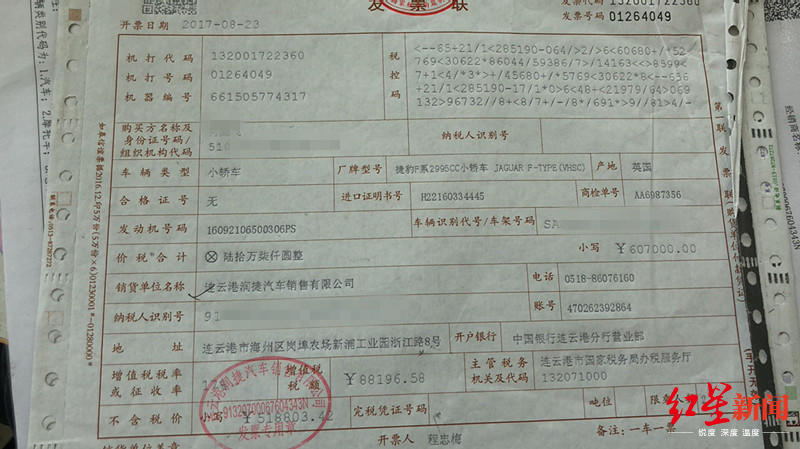 发票联
发票代码 132001722360
开票日期 2017-08-23
发票号码 01264049
机打代码 132001722360
机打号码 01264049
机器编号 661505774317
税控码
<--65+21/1<285190-064/>2/>6<60680+/*52
769<30622*86044/59386/7>/14163<<>8599<
7+1<4/*3*>+/45680+/*5769<30622*8<--636
+21/1<285190-17/1*0>6<48+<21979/64>069
132>96732//8+<8/7+/-/8*/691*>9//81>4/-
购买方名称及
身份证号码/
组织机构代码
510
纳税人识别号
车辆类型 小轿车 厂牌型号 捷豹F系2995CC小轿车 JAGUAR F-TYPE(VHSC) 产地 英国
合格证号 无 进口证明书号 H22160334445 商检单号 AA6987356
发动机号码 16092106500306PS 车辆识别代号/车架号码 SA
价税合计 ⊗陆拾万柒仟圆整 小写 ￥607000.00
销货单位名称 连云港润捷汽车销售有限公司 电话 0518-86076160
纳税人识别号 91 账号 470262392864
地址 连云港市海州区岗埠农场新浦工业园浙江路8号 开户银行 中国银行连云港分行营业部
增值税税率
或征收率
增值税
税额
￥88196.58
主管税务
机关及代码
连云港市国家税务局办税服务厅
132071000
不含税价 小写 ￥518803.42 完税凭证号码 吨位
销货单位盖章 开票人 程忠梅 备注：一车一票
发票专用章
第一联 发票联
1.汽车；2.摩托车
红星新闻
锐度 深度 温度